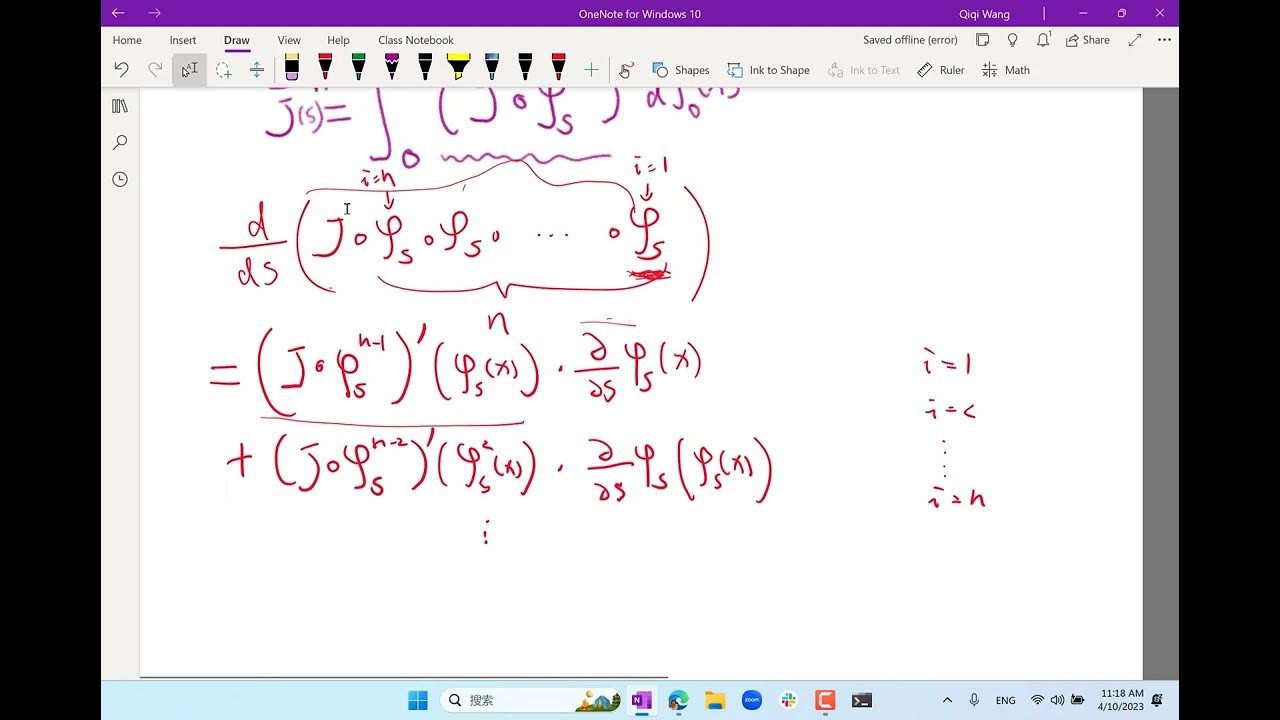 OneNote for Windows 10
Qiqi Wang
Home Insert Draw View Help Class Notebook
Saved offline (error)
Share
Shapes Ink to Shape Ink to Text Ruler Math
J(s) = ∫₀ (J∘φ_s
i=n i=1
d/ds (J∘φ_s∘φ_s∘ ... ∘φ_s)
n
= (J∘φ_s^{n-1})'(φ_s(x)) · ∂/∂s φ_s(x)
i=1
i=
+ (J∘φ_s^{n-2})'(φ_s^2(x)) · ∂/∂s φ_s(φ_s(x))
⋮
i=n
⋮
搜索
zoom
ENG
11:18 AM
4/10/2023